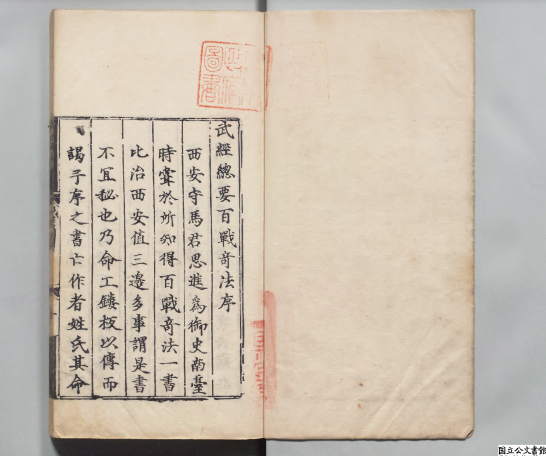 武經總要百戰竒法序
西安守馬君思進爲御史南臺
時甞於所知得百戰竒法一書
比治西安值三邊多事謂是書
不宜秘也乃命工鋟板以傳而
謁予序之書亡作者姓氏其命
国立公文書館